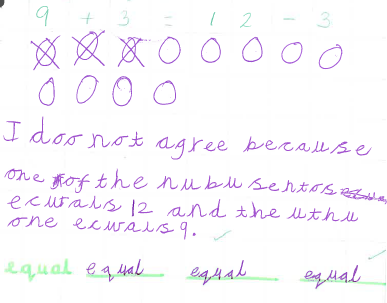 9 + 3 = 12 - 3
I doo not agree because
one of the nubu sentos
ecurals 12 and the uthu
one ecurals 9.
equal equal equal equal